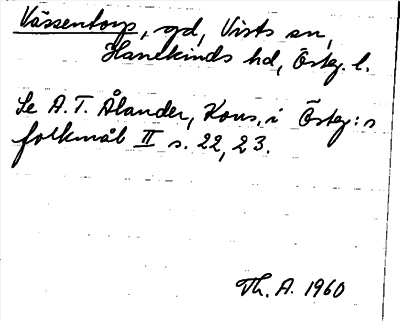 Vässentorp, gd, Vists sn,
Hanekinds hd, Östg. l.
Se A. T. Ålander, Kons. i Östg:s
folkmål II s. 22, 23.
Th. A. 1960